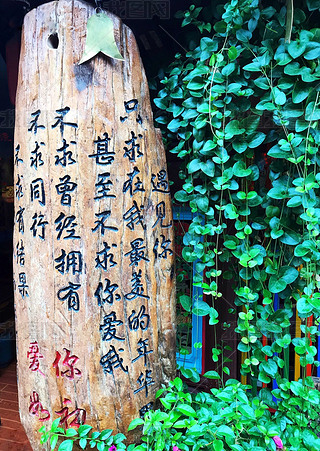 遇见你
只求在我最美的年华
甚至不求你爱我
不求曾经拥有
你
不求同行
爱
不求有结果